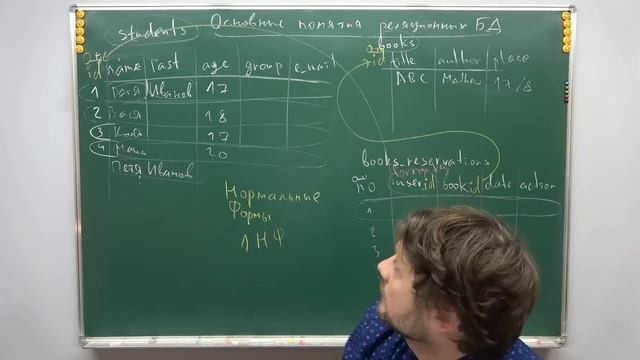 students
Основные понятия реляционных БД
id name last age group e_mail
1 Петя Иванов 17
2 Вася 18
3 Коля 17
4 Маша 20
Петя Иванов
books
id title author place
ABC 17/8
books_reservations
foreign key
no userid bookid date action
1
2
3
Нормальные
Формы
1НФ